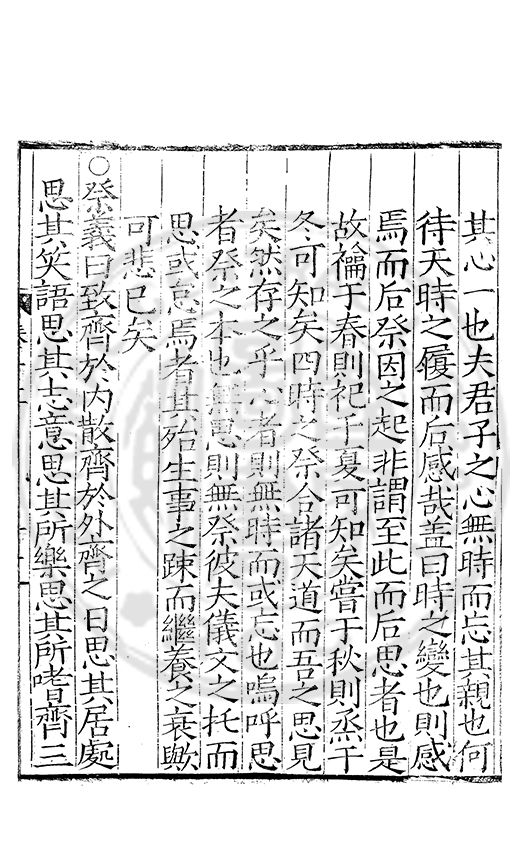 其心一也夫君子之心無時而忘其親也何
待天時之履而后感哉蓋曰時之變也則感
焉而后祭因之起非謂至此而后思者也是
故禴于春則祀于夏可知矣嘗于秋則烝于
冬可知矣四時之祭合諸天道而吾之思見
矣然存之乎心者則無時而或忘也嗚呼思
者祭之本也無思則無祭彼夫儀文之托而
思或怠焉者其殆生事之踈而繼養之衰歟
可悲已矣
○祭義曰致齊於内散齊於外齊之日思其居處
思其笑語思其志意思其所樂思其所嗜齊三